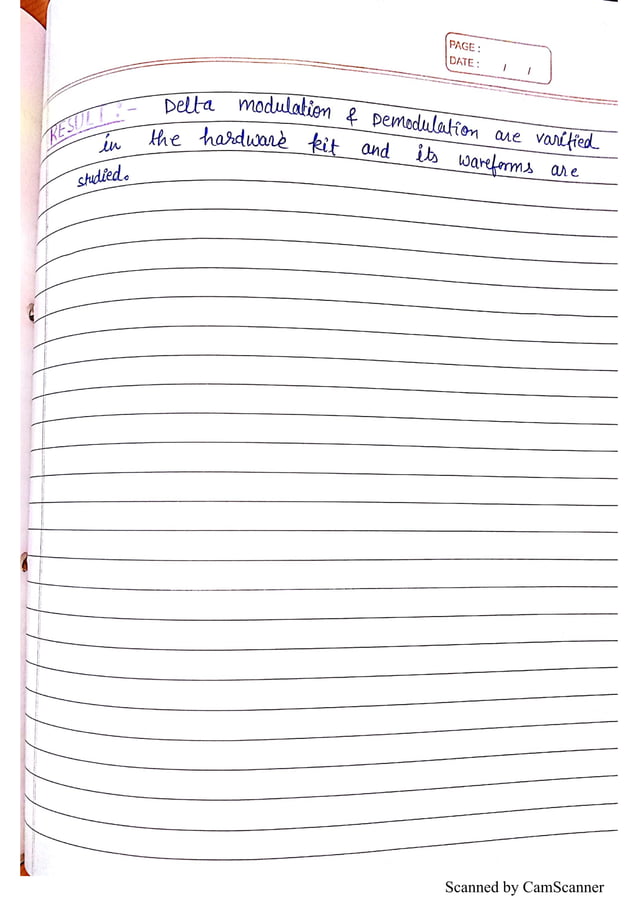 PAGE :
DATE : / /
RESULT :- Delta modulation & Demodulation are varified
in the hardware kit and its waveforms are
studied.
Scanned by CamScanner